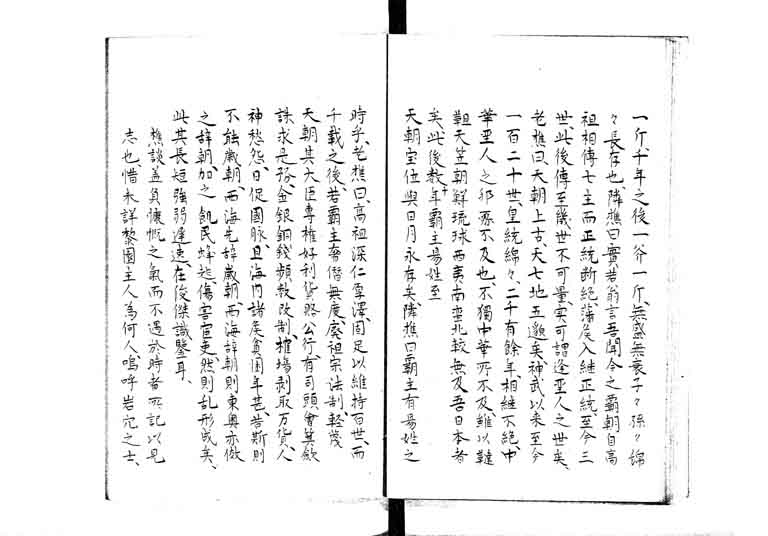 一斤、千年之後一斧一斤、無盛無衰、子々孫々綿
々長存也、隣樵曰、實若翁言、吾聞今之覇朝自高
祖相傳七主而正統断絶、藩侯入継正統、至今三
世、此後傳至幾世不可量、実可謂逢聖人之世矣、
老樵曰、天朝上古天七地五邈矣、神武以来至今
一百二十世、皇統綿々、二千有餘年、相継不絶、中
華聖人之邦所不及也、不獨中華所不及、雖以韃
靼天竺朝鮮琉球西夷南蛮北狄無及吾日本者
矣、此後数十年覇主易姓、至
天朝宝位與日月永存矣、隣樵曰、覇主有易姓之
時乎、老樵曰、高祖深仁厚澤、固足以維持百世、而
千載之後、若覇主奢僭無度、廃祖宗法制、軽蔑
天朝、其大臣専権好利、貨賂公行、有司頭會箕斂
誅求是務、金銀銅銭頻数改制、搉場剥取万貨、人
神愁怨、日促國脉、且海内諸侯貧困年甚、若斯則
不能歳朝、西海先辞歳朝、西海辞朝則東奥亦傚
之辞朝、加之飢民蜂起、傷害官吏、然則乱形成矣、
此其長短強弱遅速、在俊傑識鑒耳、
樵談盖負慷慨之氣而不遇於時者所記以見
志也、惜未詳黎園主人為何人、嗚呼岩穴之士、